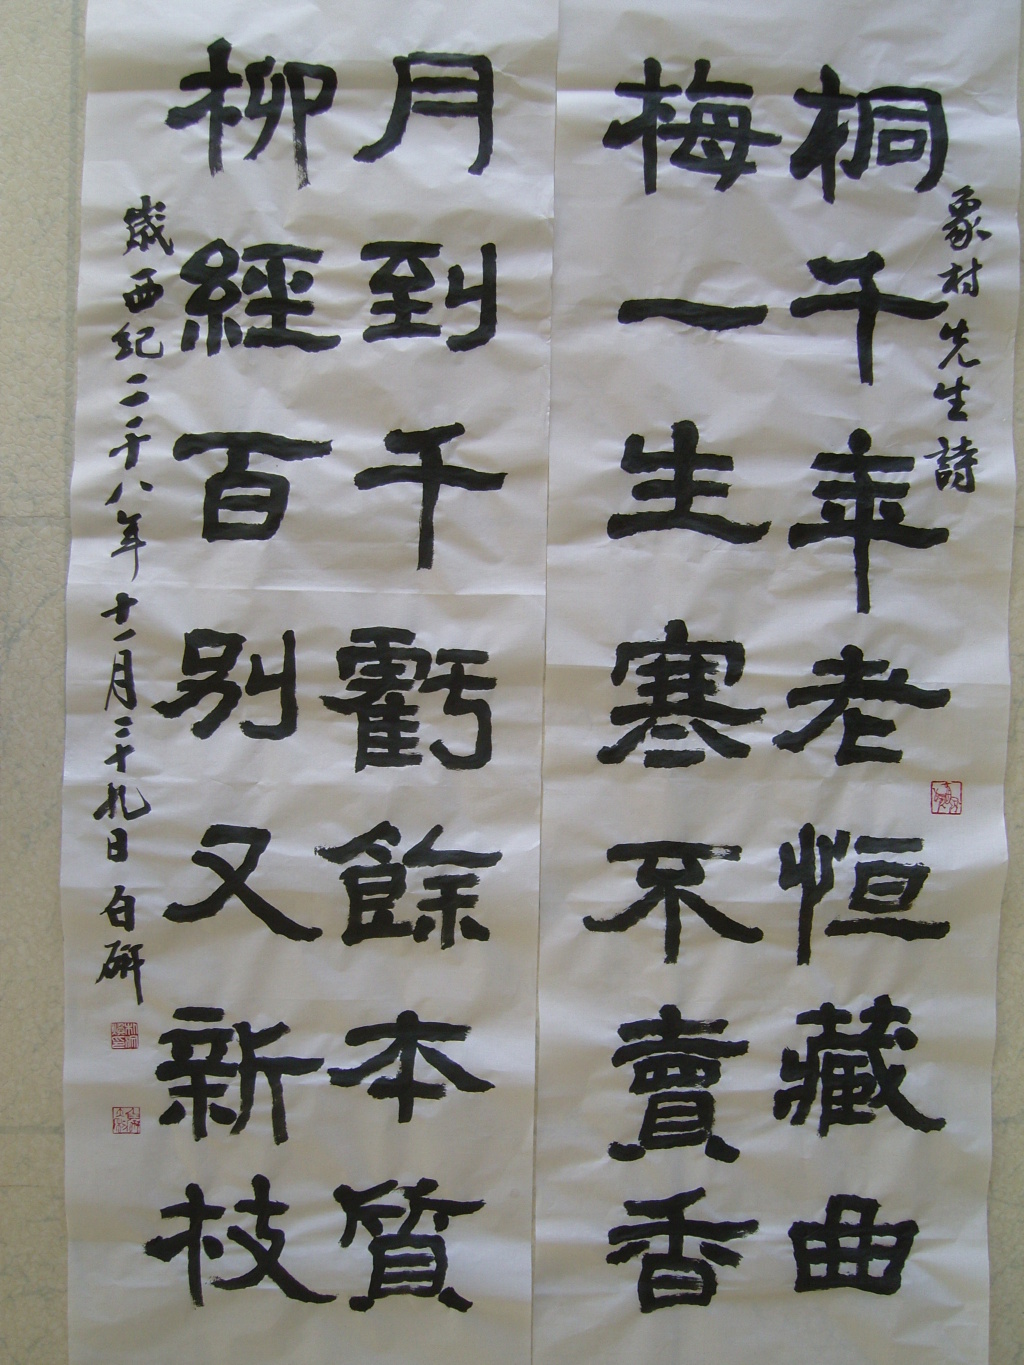 象村先生詩
桐千年老恒藏曲
梅一生寒不賣香
月到千虧餘本質
柳經百别又新枝
歲西紀二千八年十一月二十九日白硏